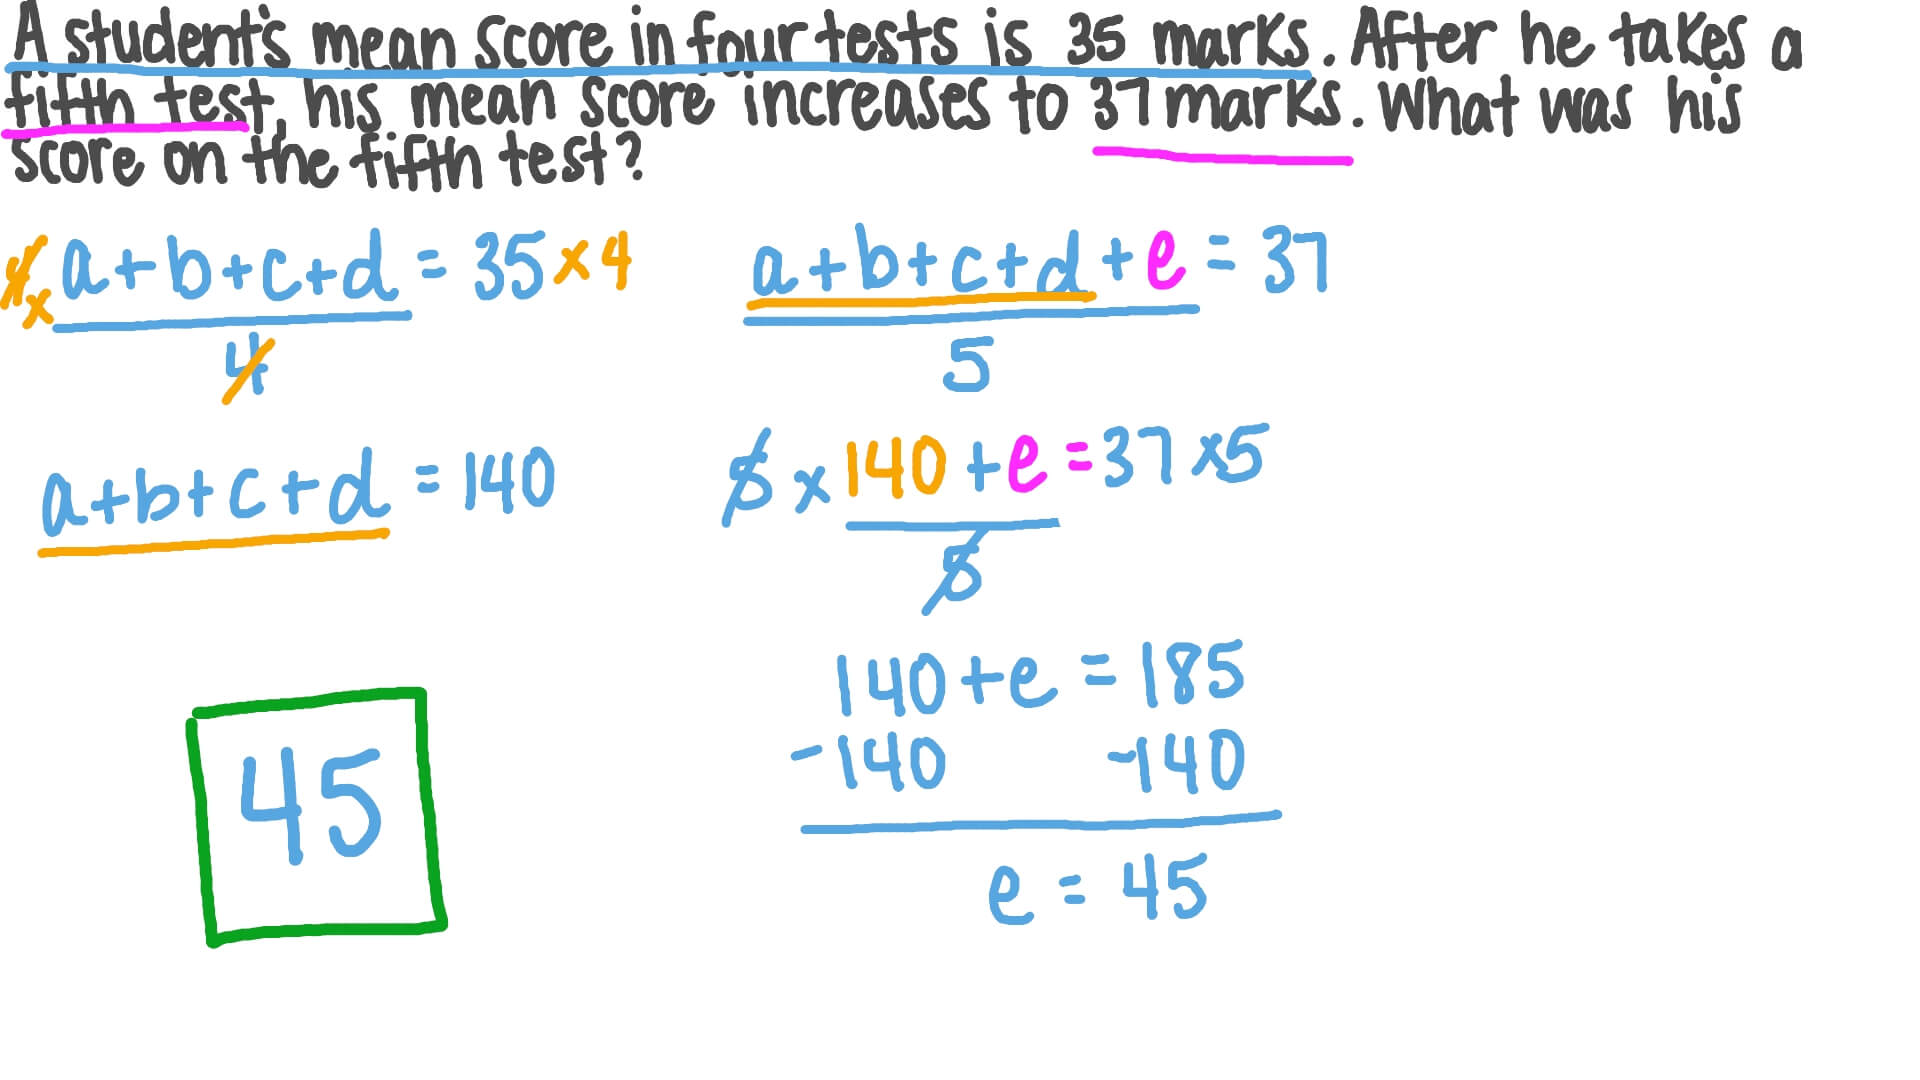 A student's mean score in four tests is 35 marks. After he takes a
fifth test, his mean score increases to 37 marks. What was his
score on the fifth test?
4 x a+b+c+d = 35 x 4
4
a+b+c+d = 140
a+b+c+d+e = 37
5
5 x 140+e = 37 x5
5
140+e = 185
-140 -140
e = 45
45